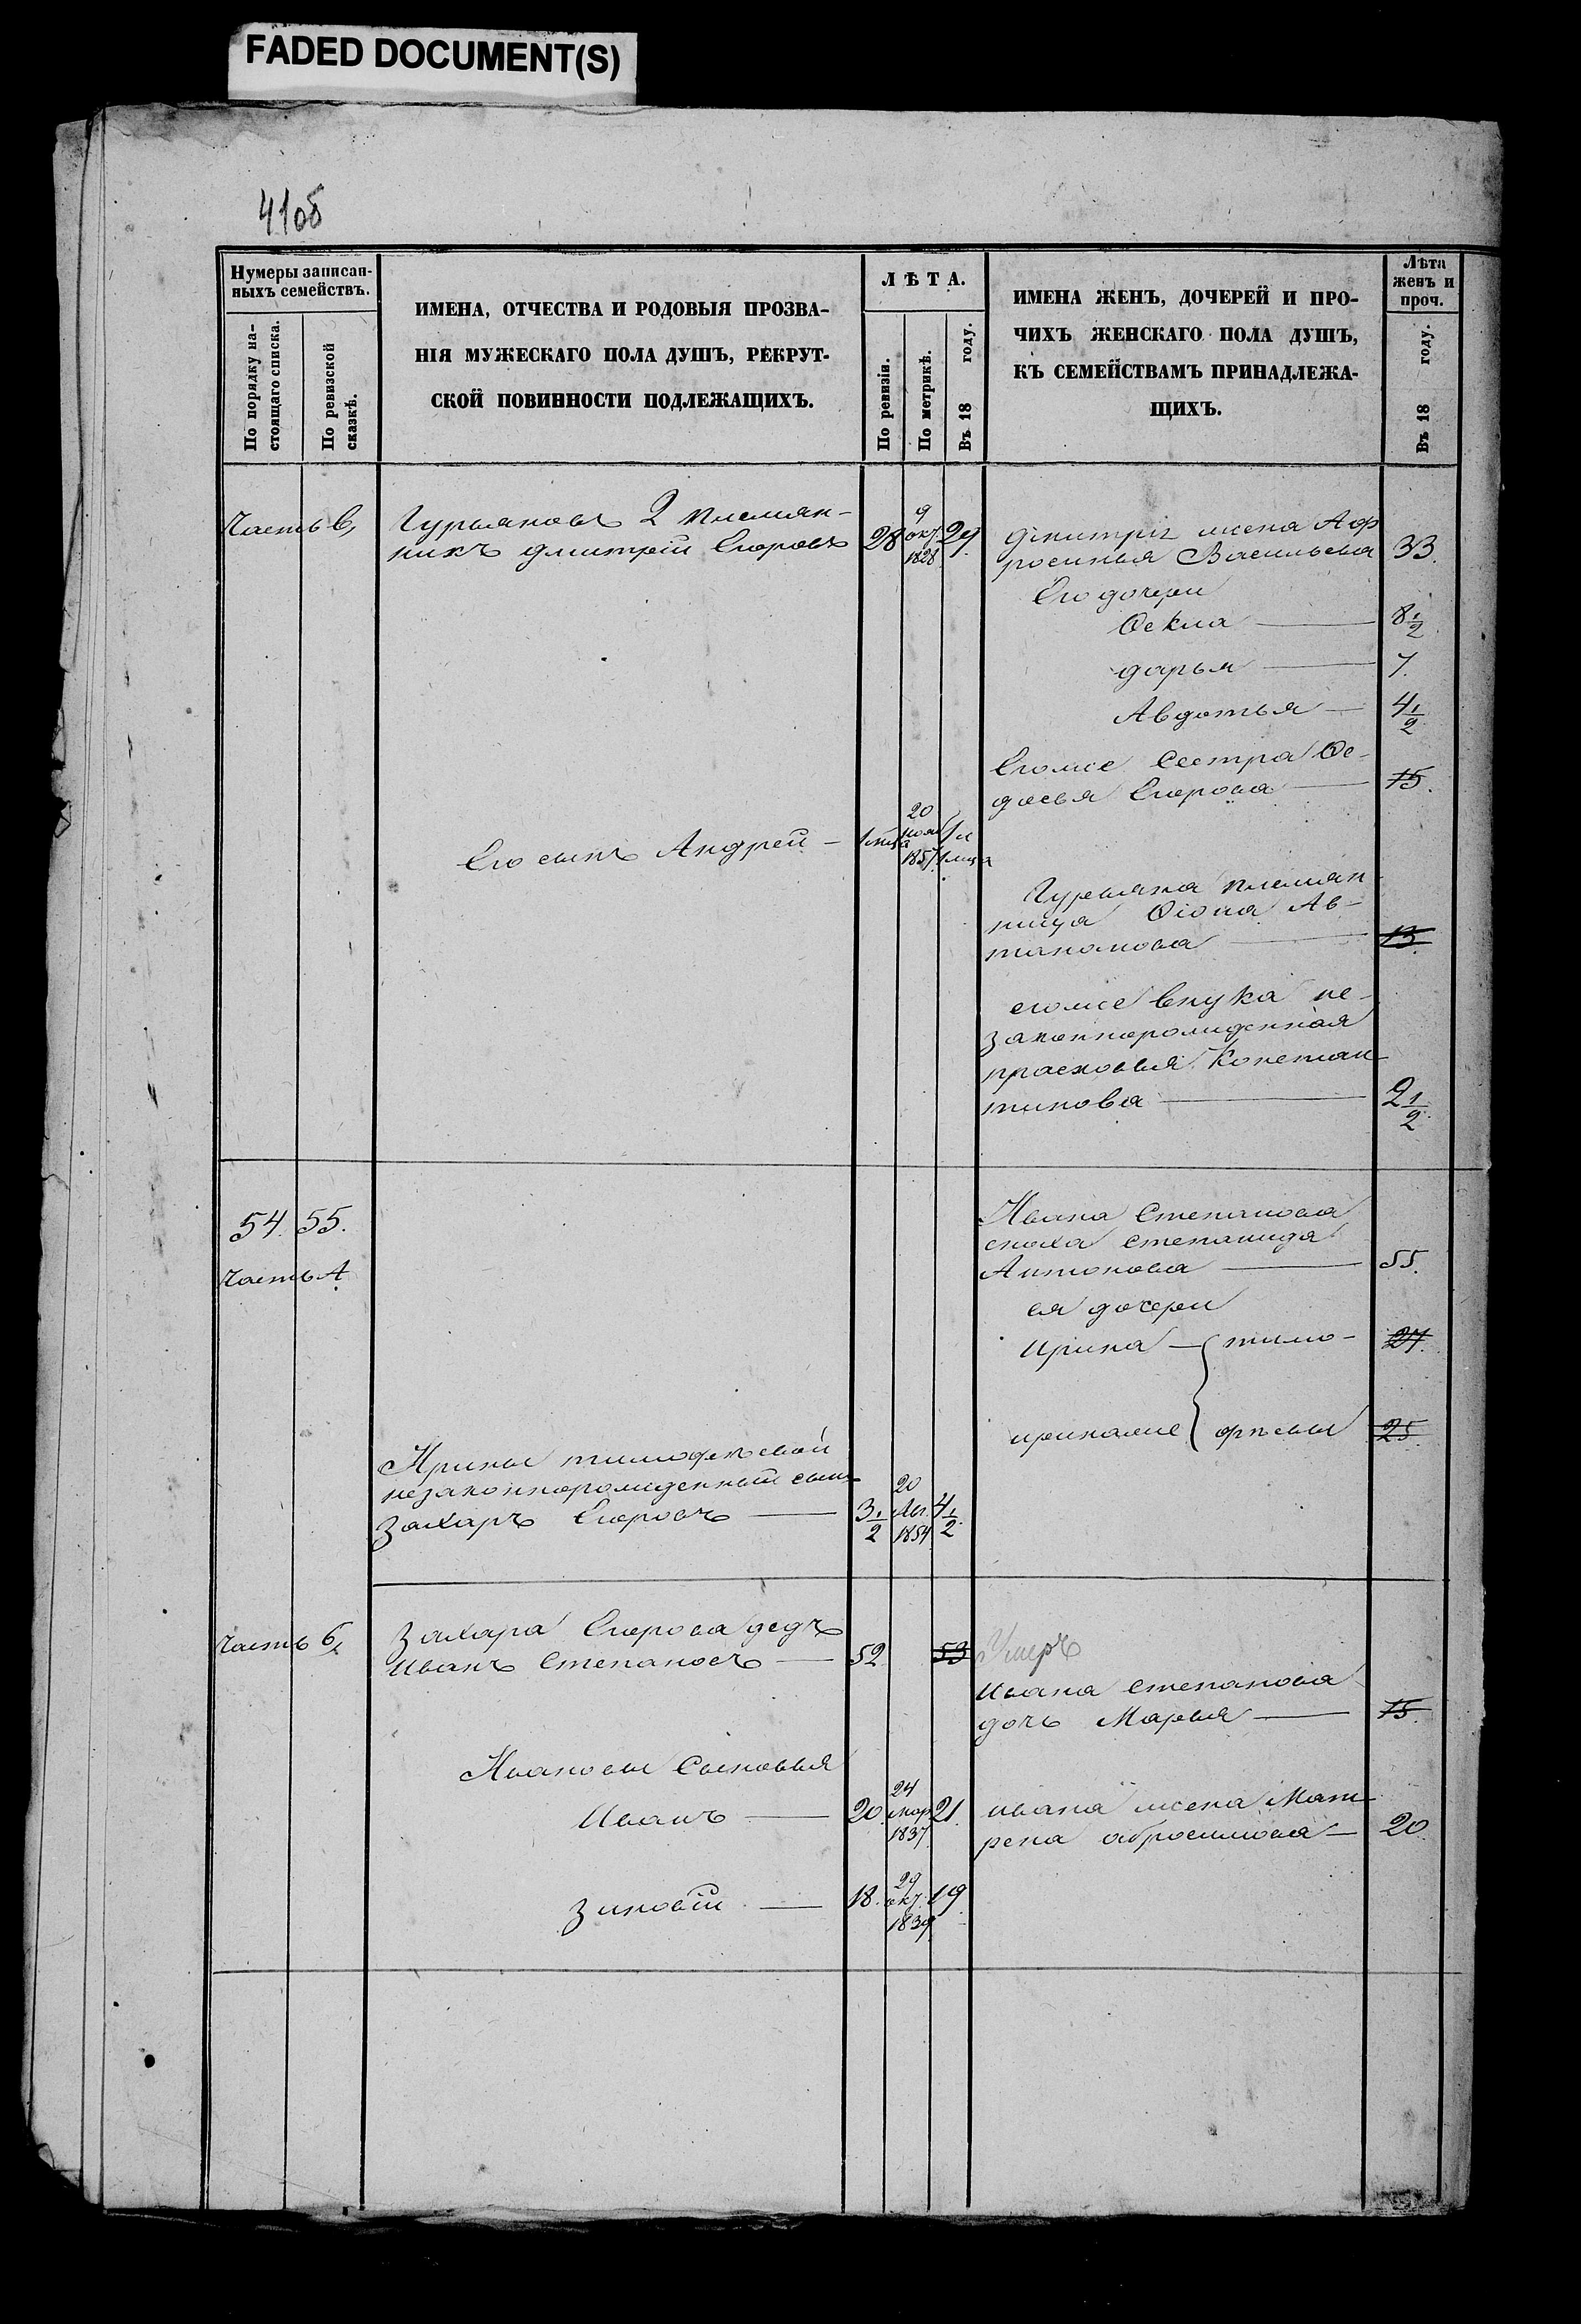 FADED DOCUMENT(S)
41об
Нумеры записан-
ныхъ семействъ.
По порядку на-
стоящаго списка.
По ревизской
сказкѣ.
ИМЕНА, ОТЧЕСТВА И РОДОВЫЯ ПРОЗВА-
НІЯ МУЖЕСКАГО ПОЛА ДУШЪ, РЕКРУТ-
СКОЙ ПОВИННОСТИ ПОДЛЕЖАЩИХЪ.
ЛѢТА.
По ревизіи.
По метрикѣ.
Въ 18 году.
ИМЕНА ЖЕНЪ, ДОЧЕРЕЙ И ПРО-
ЧИХЪ ЖЕНСКАГО ПОЛА ДУШЪ,
КЪ СЕМЕЙСТВАМЪ ПРИНАДЛЕЖА-
ЩИХЪ.
Лѣта
женъ и
проч.
Въ 18 году.
Часть В,
Гурьяновъ 2 племян-
никъ дмитрей Егоровъ
28
9
окт.
1828
29
дмитрія жена Аф
росинья Васильева
33.
Его дочери
Ѳекла 8 1/2
дарья 7.
Авдотья 4 1/2
Егоже Сестра Ѳе-
досья Егорова 15.
Его сынъ Андрей
20
ноя
1857
Гурьяна племян-
ница Ѳіона Ав-
таномова 13.
егоже внука не-
законнорожденная
прасковья Констан-
тинова 2 1/2
54. 55.
Часть А
Ивана Степанова
сноха степанида
Антонова 55.
ея дочери
Ирина тимо- 27.
иринаже фѣевы 25.
Ирины тимофѣевой
незаконнорожденный сынъ
Захаръ Егоровъ
3 1/2
20
Авг.
1854
4 1/2
Часть Б,
Захара Егорова дедъ
Иванъ Степановъ 52 53
Умеръ
Ивана степанова
дочь Марья 15.
Ивановы Сыновья
Иванъ 20.
24
мар
1837
21.
ивана жена Мат-
рена абросимова 20.
Зиновій 18.
29
окт.
1839
19